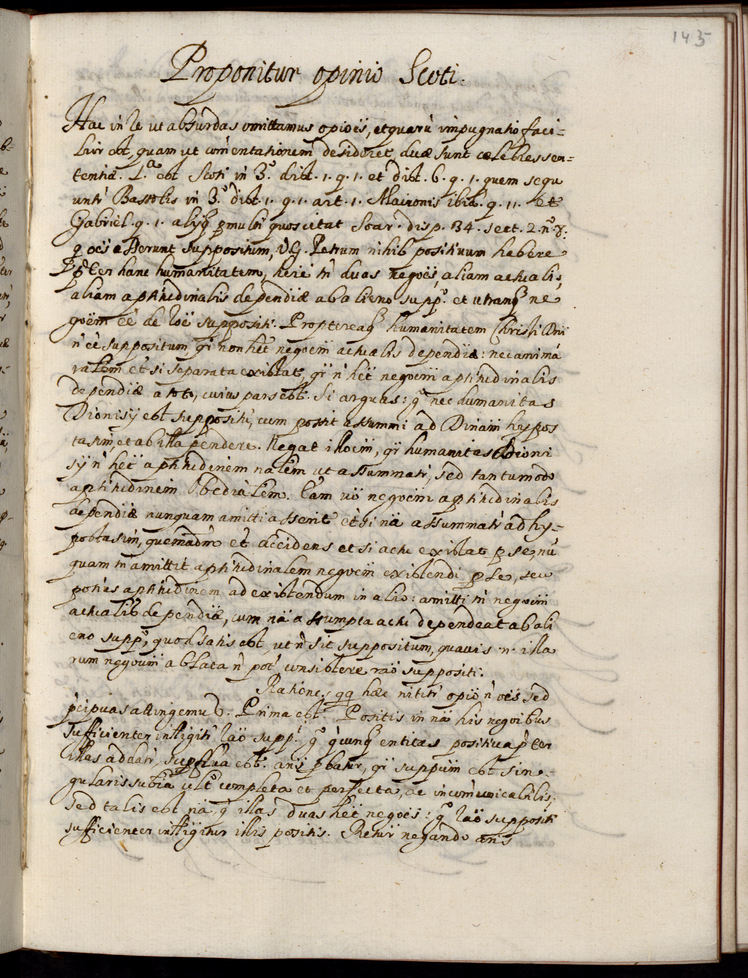 145
Proponitur opinio Scoti.
Hac in re ut absurdas omittamus opiöës, et quarū impugnatio faci-
lior est, quam ut com̄entationem desideret, duæ sunt celebres sen-
tentiæ. 1.ª est Scoti in 3.º dist. 1. q. 1. et dist. 6. q. 1. quem sequ
untr Bassolis in 3.º dist. 1. q. 1. art. 1. Maironis ibid. q. 11. et
Gabriel q. 1. aliiq pmulti quos citat Soar. disp. 34. sect. 2. n.º 8.
q oës asserunt suppositum, V.g. Petrum nihil positiuum habere
pter hanc humanitatem, here tn duas negoës aliam actualis,
aliam aptitudinalis dependiæ ab alieno supp.º et utramq ne
goëm eē de roë suppositi. Proptereaq humanitatem Christi Dni
n eē suppositum qi non het negoem actualis dependiæ: nec anima
ralem etsi separata existat qi n het negoem aptitudinalis
dependiæ a toto, cuius pars est. Si arguas: q nec humanitas
Dionisij est suppositū, cum possit assumi ad Diuinā hypos
tasim, et ab illa pendere. Negat illoem, qi humanitas Dioni
sij n het aptitudinem nalem ut assumatr, sed tantumodo
aptitudinem Obedialem. Eam uo negoem aptitudinalis
dependiæ nunquam amitti asserit etsi nä assumatr ad hy-
postasim, quemadm et accidens etsi actu existat p se, nu
quam tn amittit aptitudinalem negoem existendi p se, seu
potius aptitudinem ad existendum in alio: amitti tn negoem
actualis dependiæ, cum nä assumpta actu dependeat ab ali
eno supp.º, quod satis est, ut n sit suppositum, quauis n. illa
rum negoum ablata n pot consistere rao suppositi.
Rationes, qq hæc nititr opio n oës sed
pcipuas attingemus. Prima est. Positis in nä his negoibus
sufficienter intligitr rao supp.ti q qcunq entitas positiua pter
illas addatr, supflua est. ans pbatr, qi suppum est sin-
gularis subia ulto completa et perfecta, ac incomunicabilis,
sed talis est nä q illas duas het negoës: q rao suppositi
sufficienter intligitur illis positis. Retur negando ans